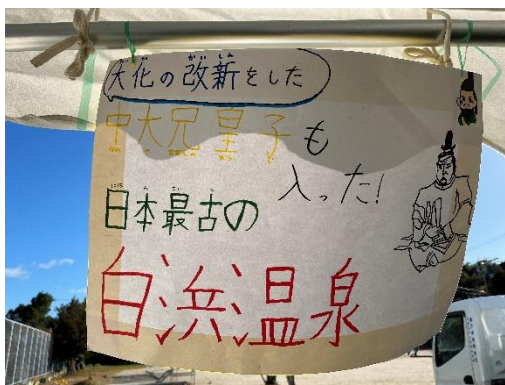 大化の改新をした
中大兄皇子も
入った!
日本最古の
白浜温泉